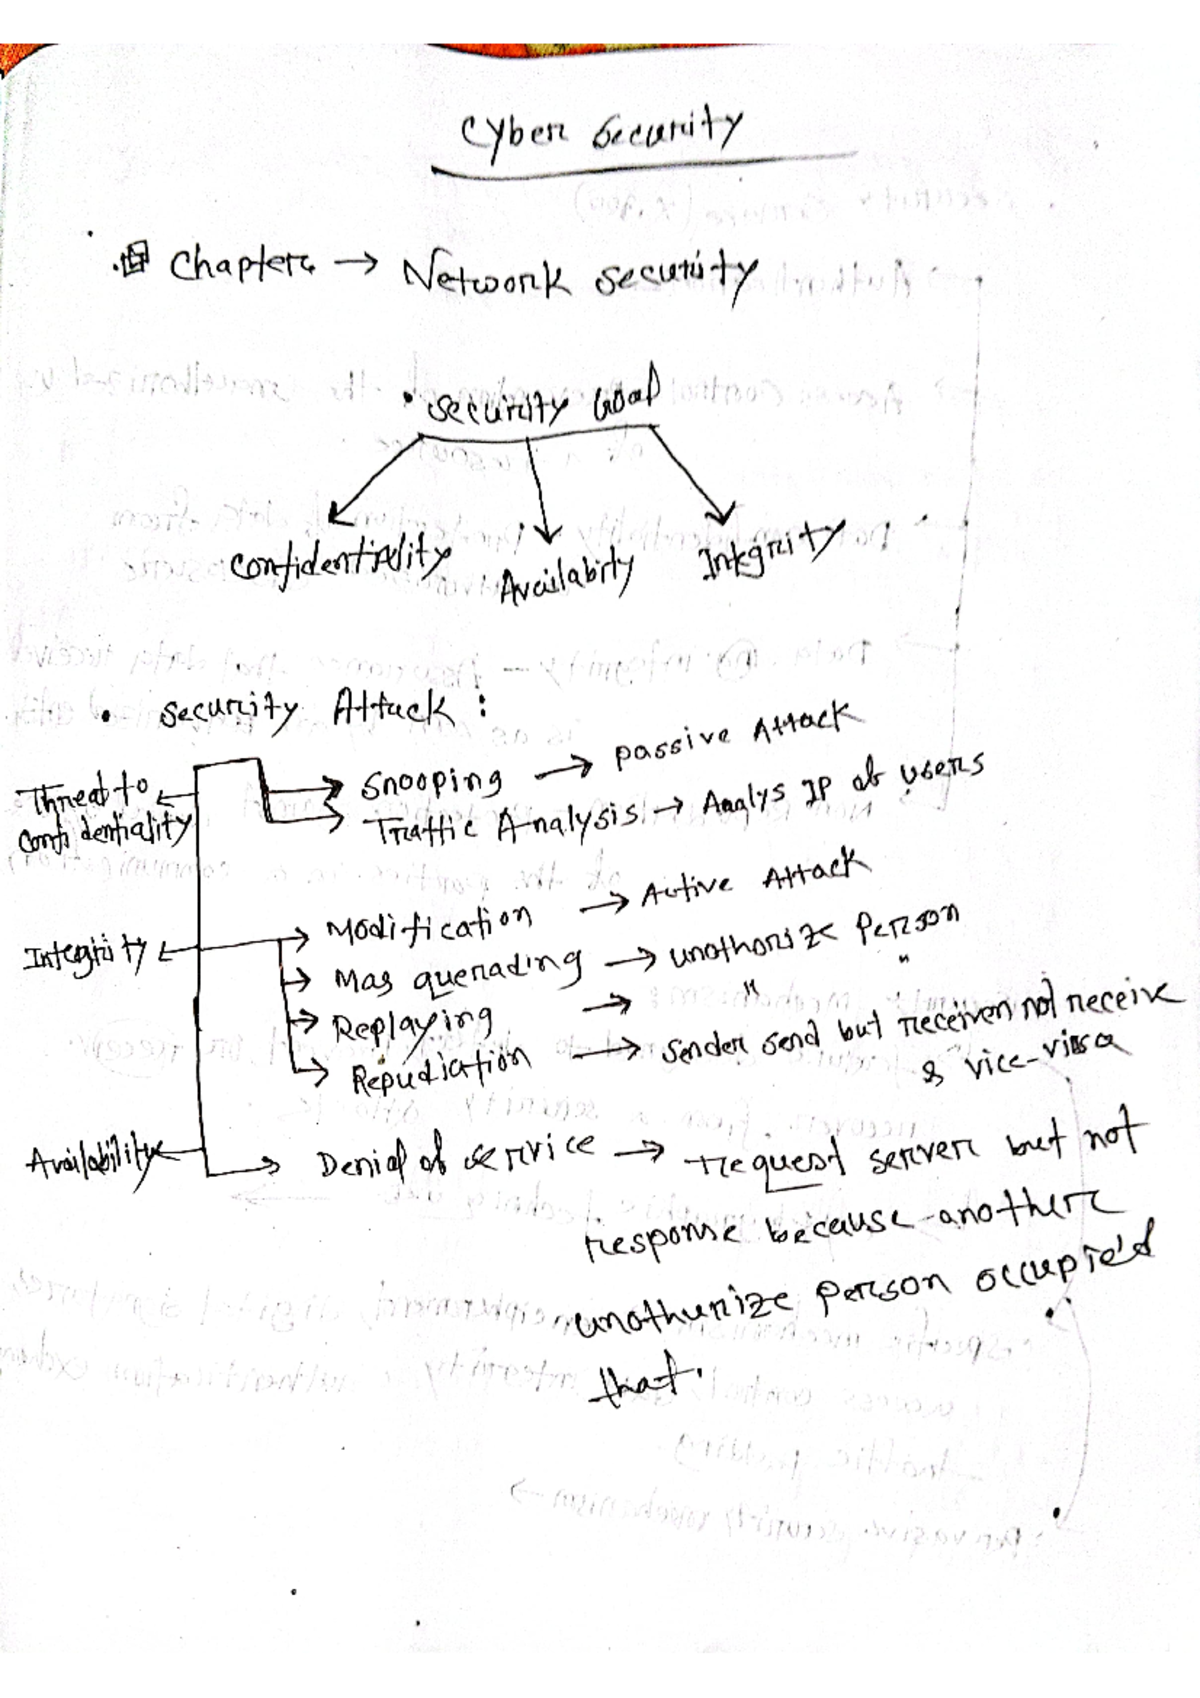 Cyber Security
Chapter → Network security
• Security Goal
Confidentiality Availabirty Integrity
• Security Attack :
Threat to Confidentiality ← → Snooping → passive Attack
→ Traffic Analysis → Analys IP of users
Integrity ← → Modification → Active Attack
→ Masquerading → unothorize Person
→ Replaying → " "
→ Repudiation → Sender send but receiver not receive
& vice-virsa
Availability ← → Denial of service → request server but not
response because another
unothurize person occupied
that.